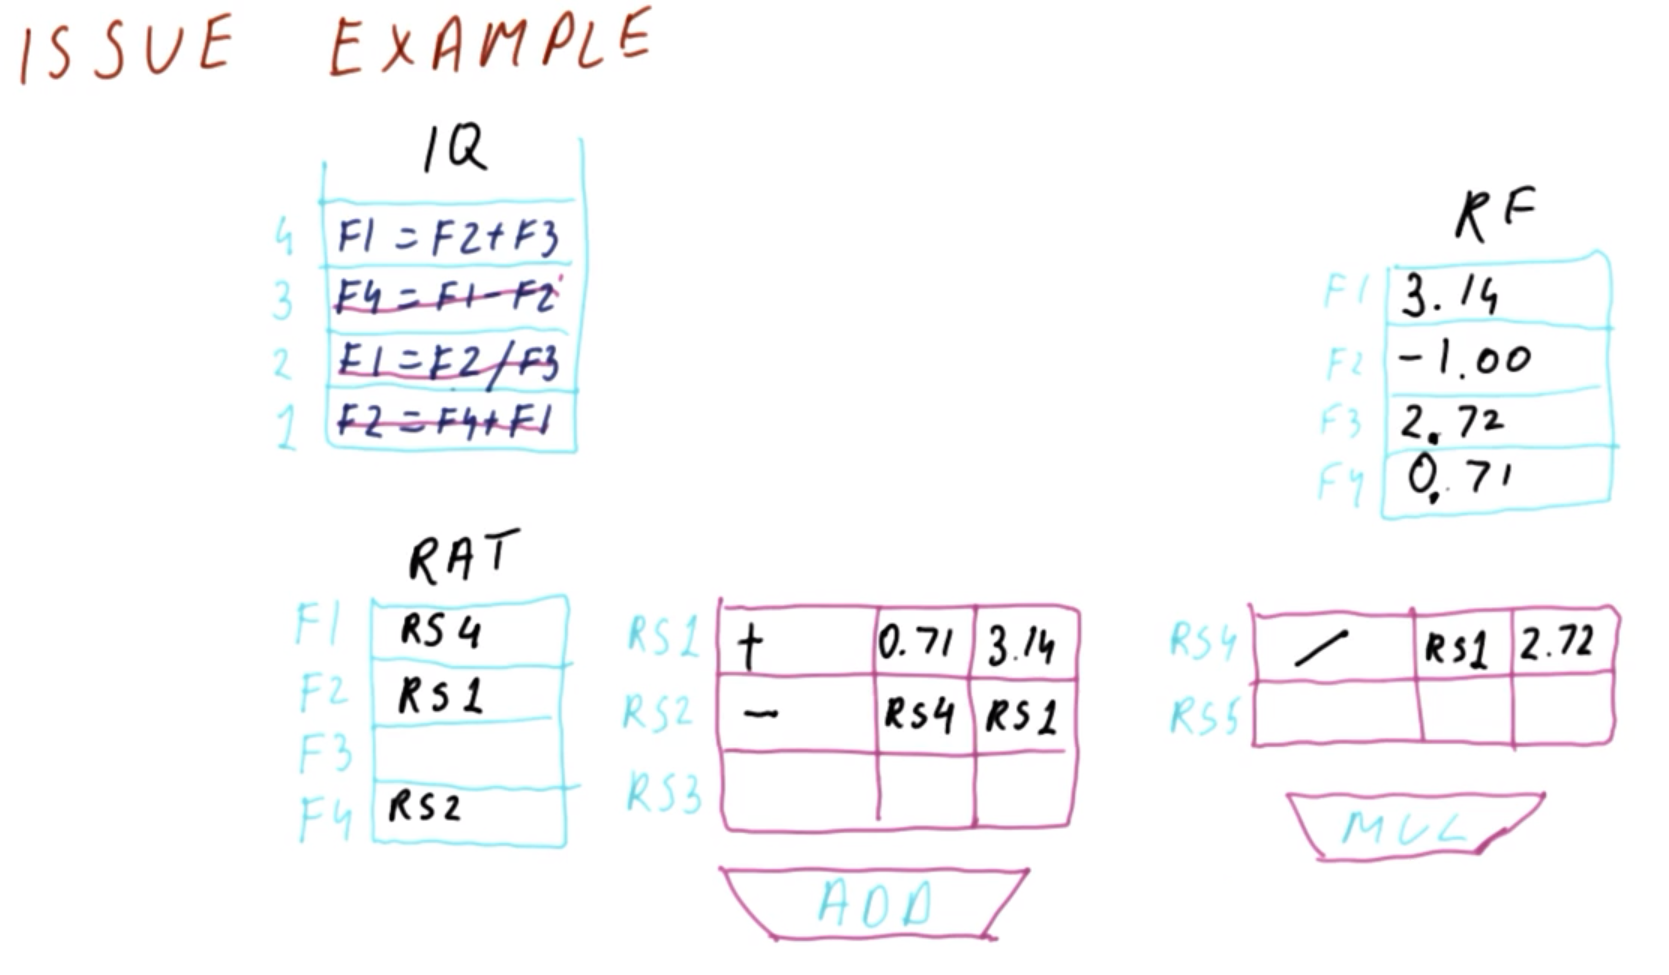 ISSUE EXAMPLE
IQ
4 F1 = F2 + F3
3 F4 = F1 - F2
2 F1 = F2 / F3
1 F2 = F4 + F1
RF
F1 3.14
F2 -1.00
F3 2.72
F4 0.71
RAT
F1 RS4
F2 RS1
F3
F4 RS2
RS1 + 0.71 3.14
RS2 - RS4 RS1
RS3
ADD
RS4 / RS1 2.72
RS5
MUL